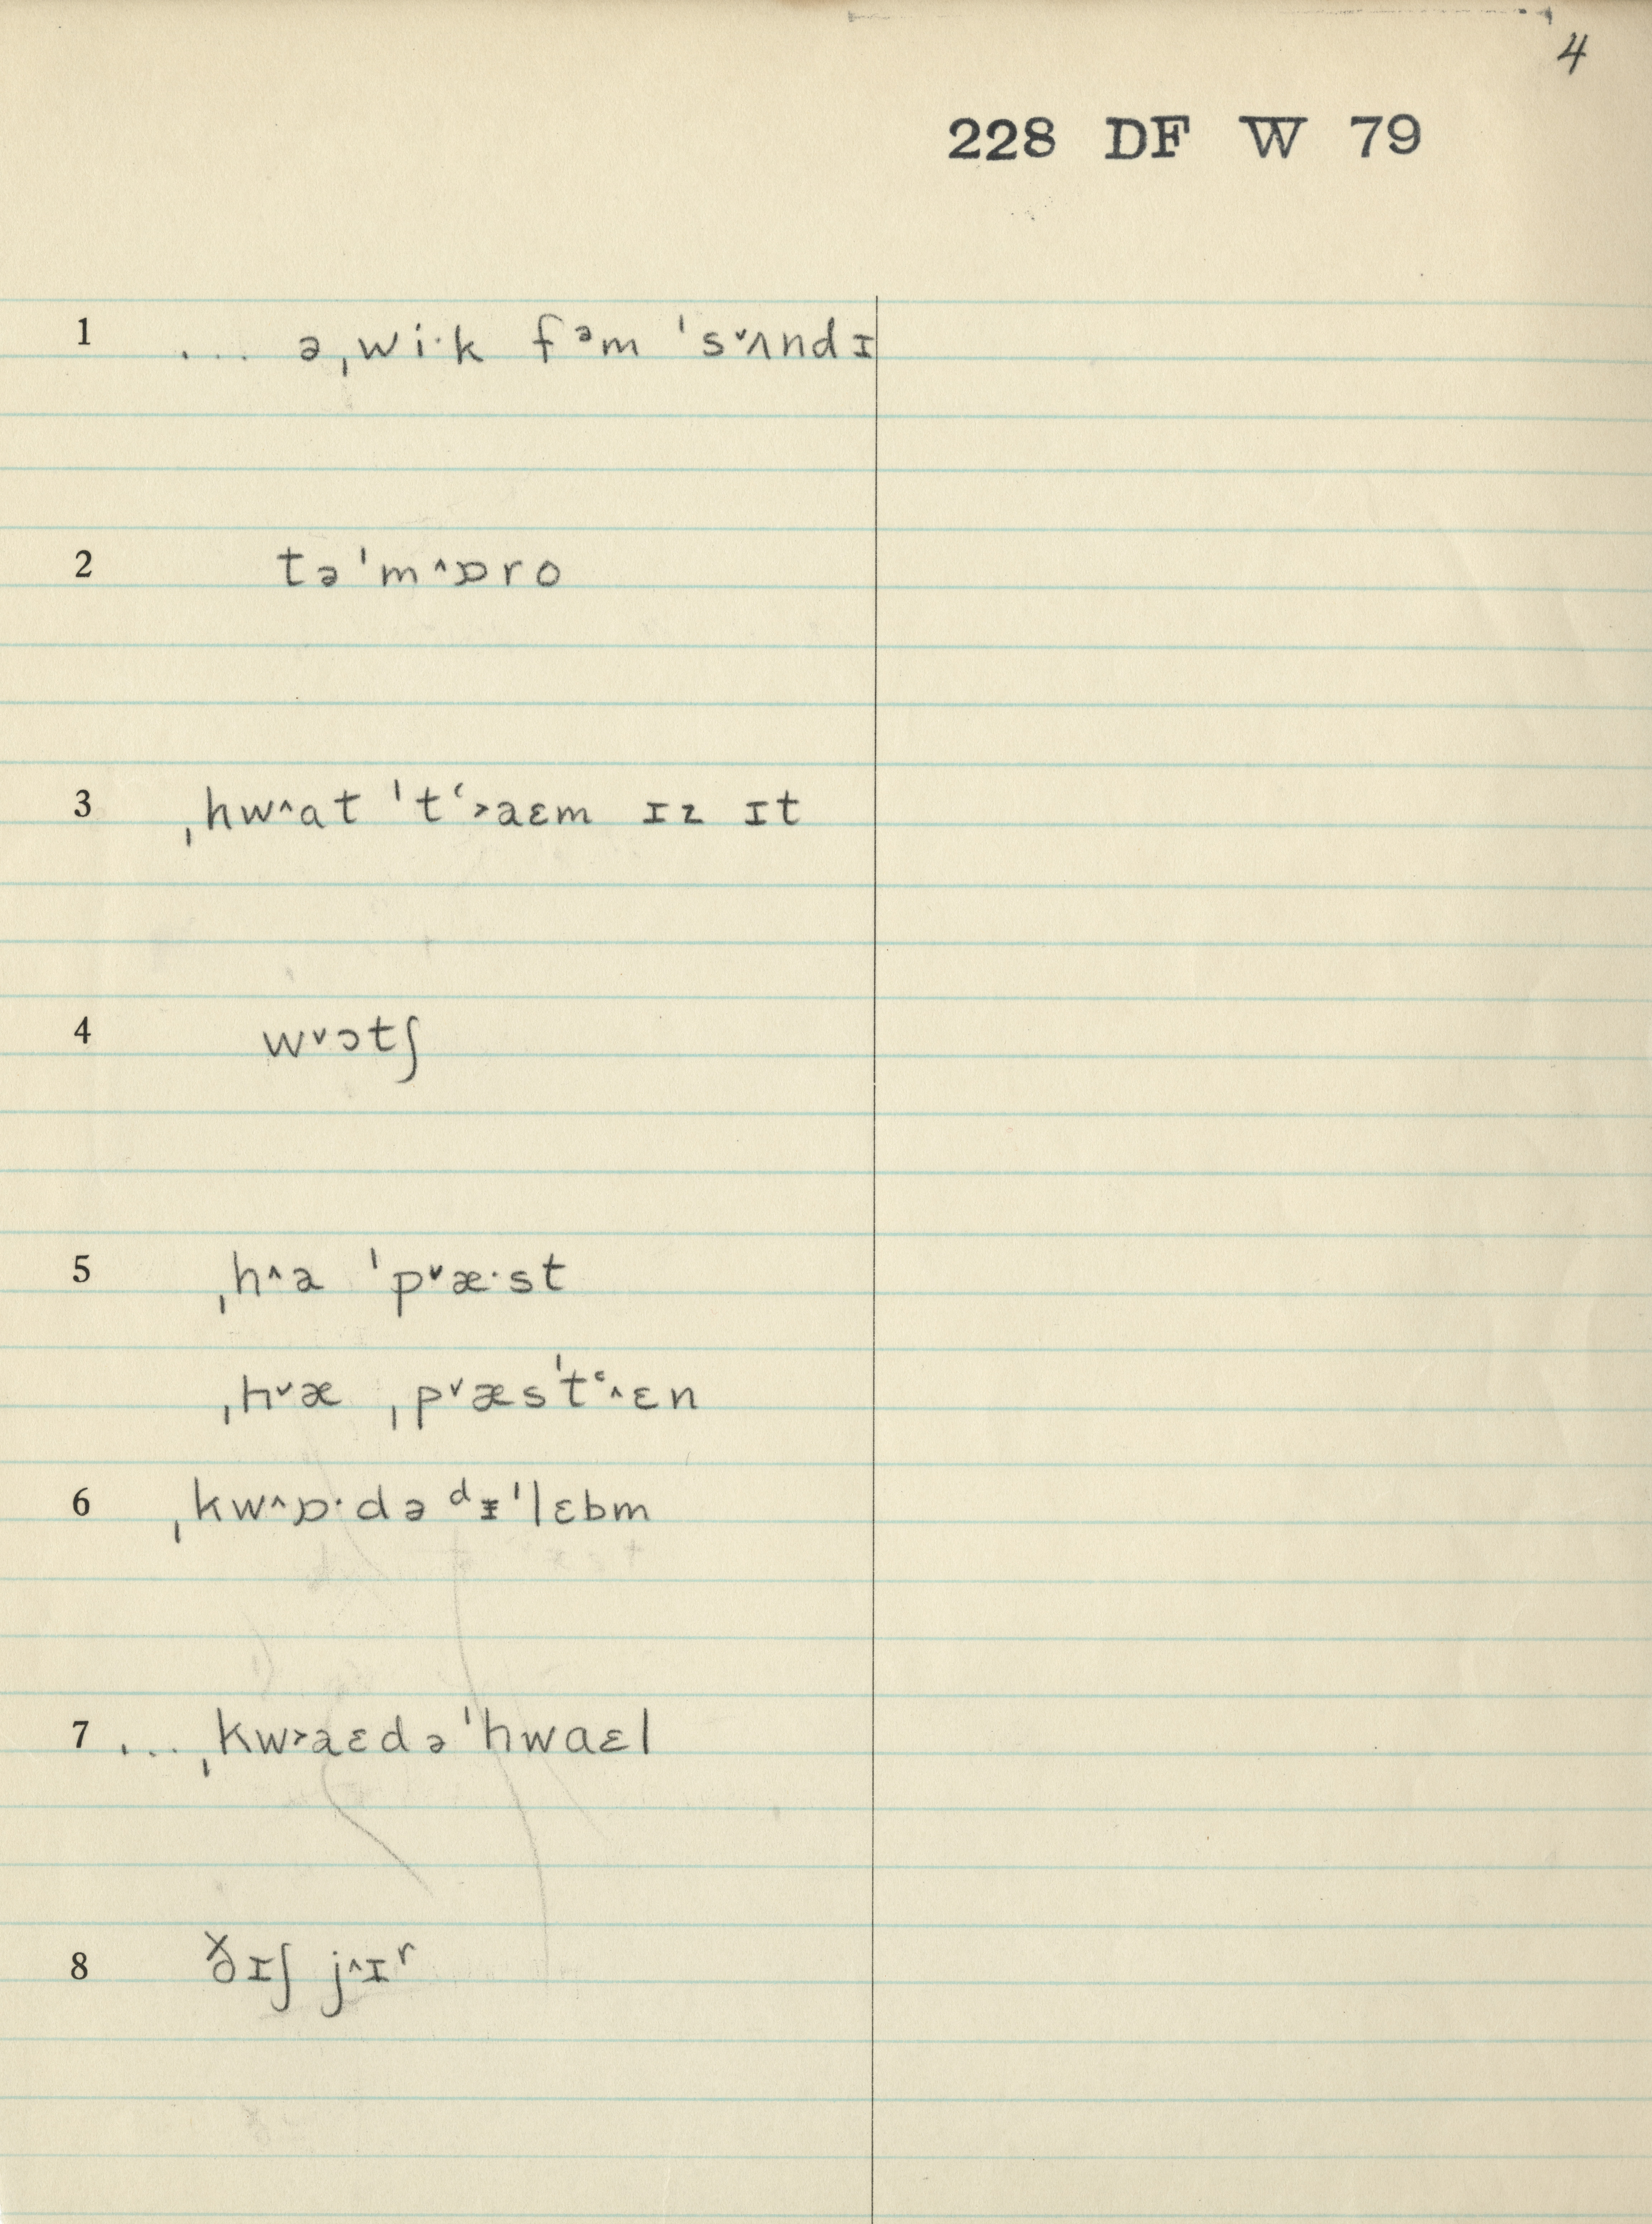 4
228 DF W 79
1 ... əˌwi·k fᵊm ˈs˅ʌndɪ
2 təˈm˄ɒro
3 ˌhw˄at ˈtʻ˃aɛm ɪz ɪt
4 w˅ɔtʃ
5 ˌh˄a ˈp˅æ·st
ˌh˅æ ˌp˅æsˈtʻ˄ɛn
6 ˌkw˄ɒ·də ᵈᵻˈlɛbm
7 ... ˌkw˃aɛdəˈhwaɛl
8 ðɪʃ j˄ɪʳ